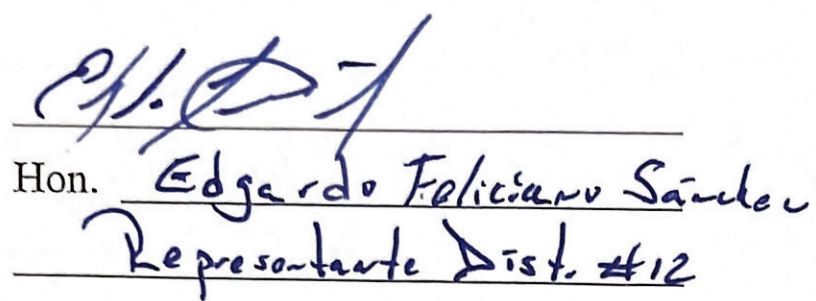 Hon. Edgardo Feliciano Sánchez
Representante Dist. #12